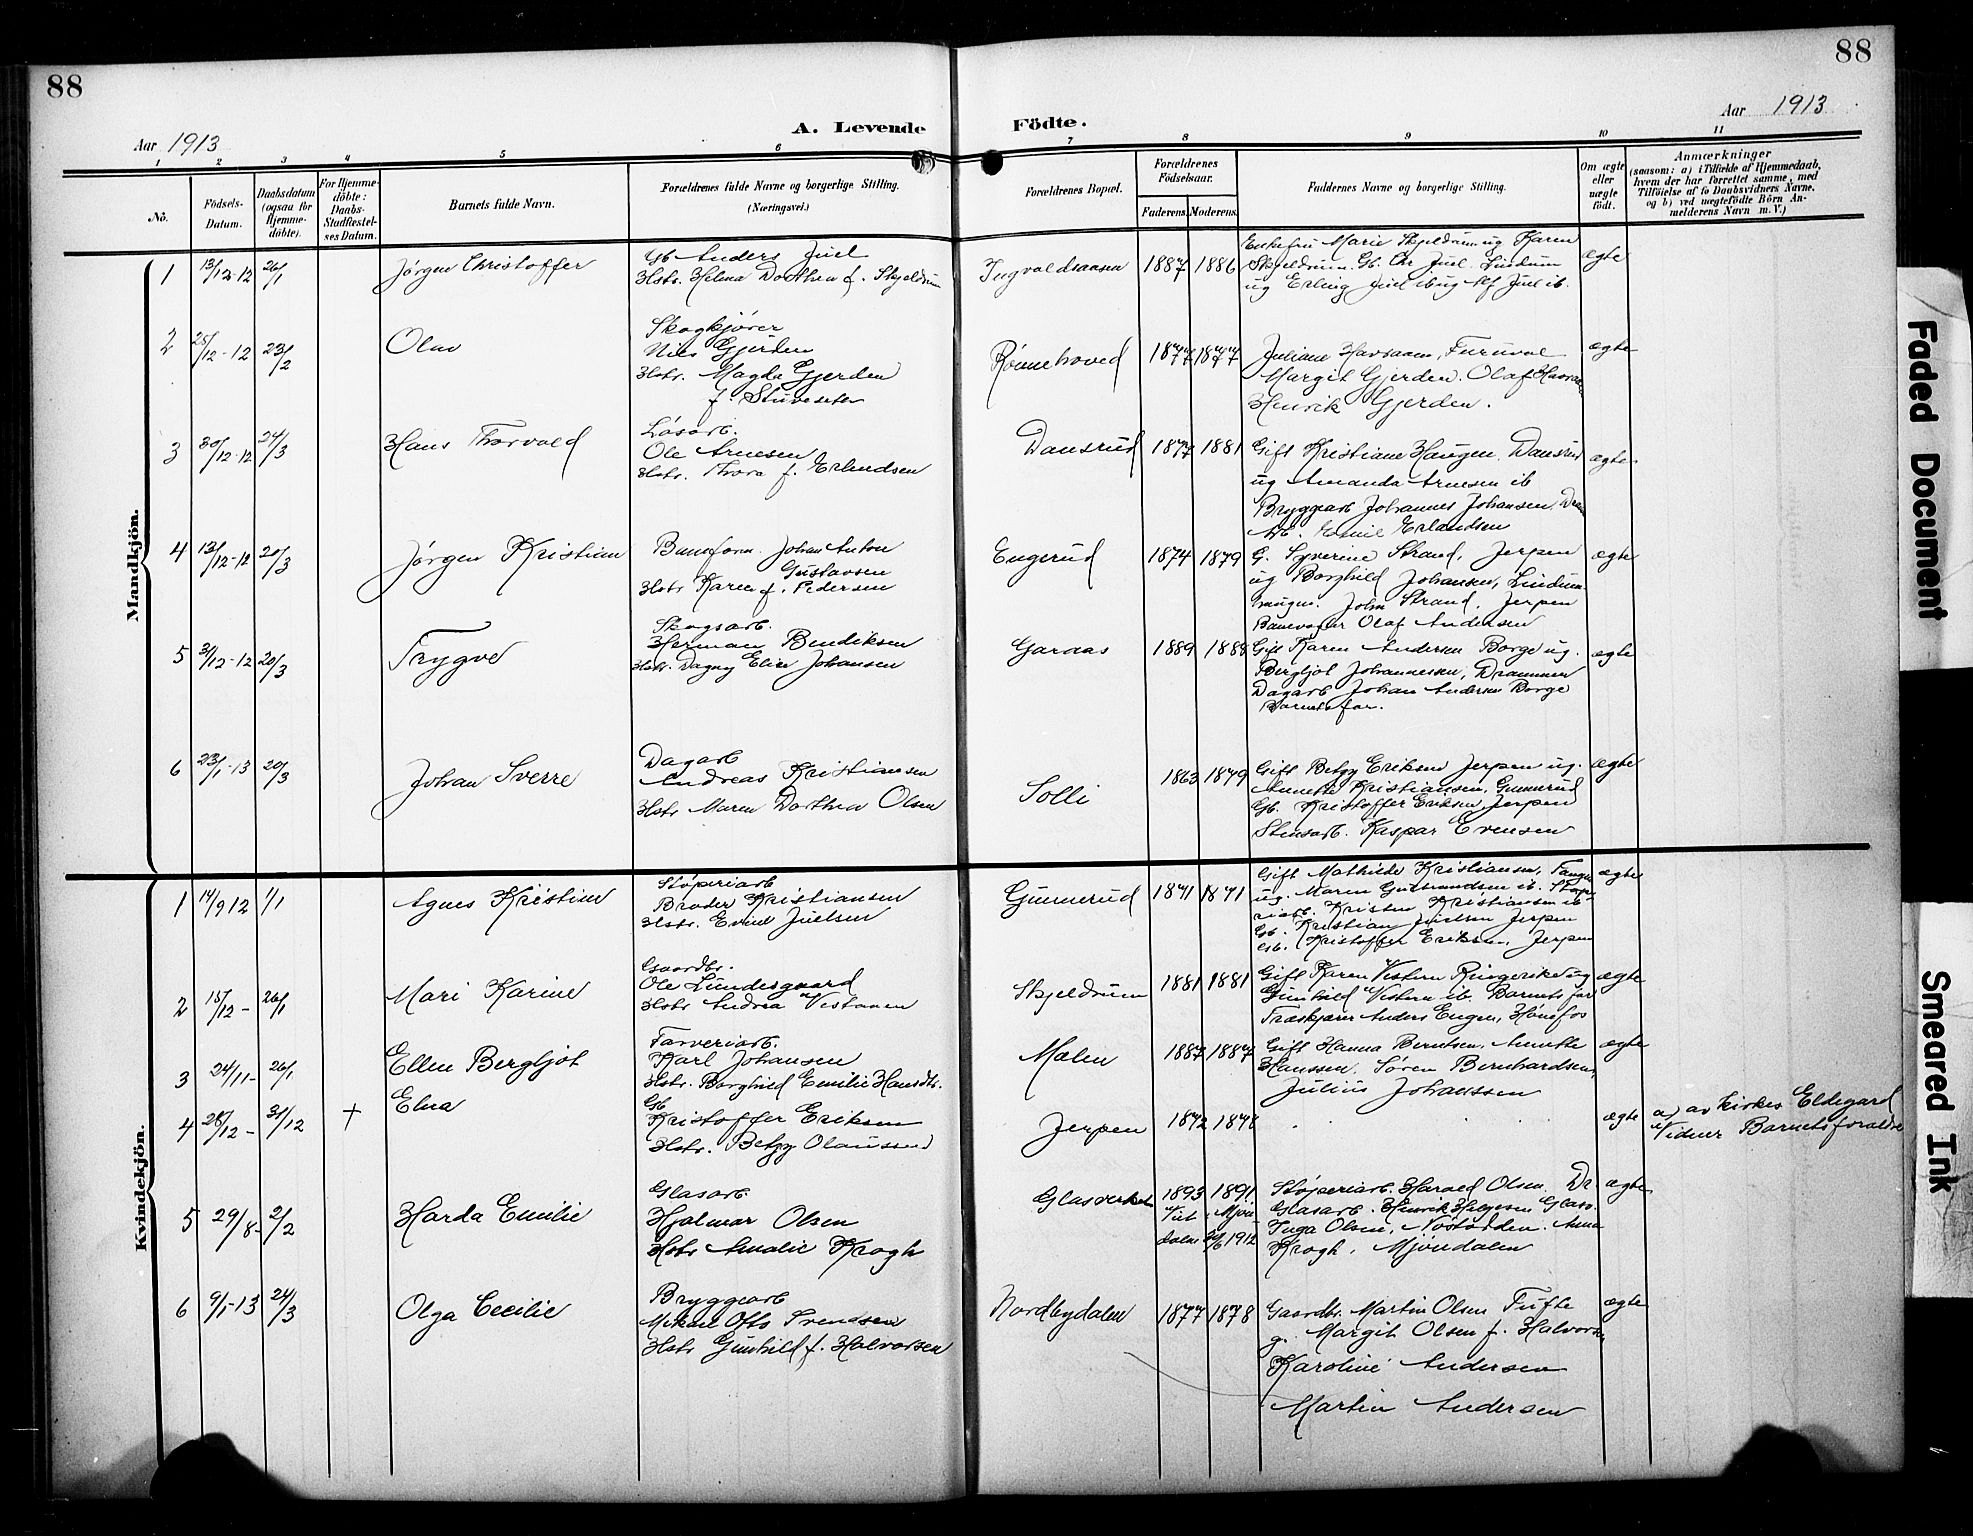 88
88
Aar 1913
A. Levende
Födte.
Aar 1913
1 2 3 4 5 6 7 8 9 10 11
No.
Födsels-
Datum.
Daabsdatum
(ogsaa for
Hjemme-
döbte).
For Hjemme-
döbte:
Daabs-
Stadfæstel-
ses Datum.
Barnets fulde Navn.
Forældrenes fulde Navne og borgerlige Stilling.
(Næringsvei.)
Forældrenes Bopæl.
Forældrenes
Födselsaar.
Faderens.
Moderens.
Faddernes Navne og borgerlige Stilling.
Om ægte
eller
uægte
födt.
Anmærkninger
(saasom: a) i Tilfælde af Hjemmedaab,
hvem der har forrettet samme, med
Tilföielse af to Daabsvidners Navne,
og b) ved uægtefödte Börn An-
melderens Navn m. V.)
Mandkjön.
1 13/12-12 26/1
Jørgen Christoffer
Gb. Anders Juel
Hstr. Helma Dorthea f. Skjeldrum
Ingvaldsaasen 1887 1886
Enkefru Marie Skjeldrum ug Karen
Skjeldrum. Gb. Chr Juel. Lindum
ug Erling Juel ib ug Alf Juel ib.
ægte
2 25/12-12 23/2
Olav
Skogkjører
Nils Gjerden
Hstr. Magda Gjerden
f. Stuveseter
Rønnehoved 1877 1877
Juliane Havraaen, Furuval
Margit Gjerden. Olaf
Henrik Gjerden.
ægte
3 30/12-12 24/3
Hans Thorvald
Løsarb.
Ole Arnesen
Hstr. Thora f. Erlandsen
Dansrud 1877 1881
Gift Kristiane Haugen, Dansrud
ug Amanda Arnesen ib
Bryggearb Johannes Johansen, Dram
Arb. Emil Erlandsen
ægte
4 13/12-12 20/3
Jørgen Kristian
Baneform. Johan Anton
Gustavsen
Hstr Karen f. Pedersen
Engerud 1874 1879
G. Syverine Strand, Jerpen
ug Borghild Johansen, Lindum
haugen. John Strand, Jerpen
Banevogter Olaf Andersen
ægte
5 31/12-12 20/3
Trygve
Skogsarb.
Herman Bendiksen
Hstr. Dagny Elise Johansen
Garaas 1889 1888
Gift Karen Andersen Borge ug.
Bergljot Johannessen, Drammen
Dagarb Johan Andersen Borge
Barnets far.
ægte
6 23/1-13 20/3
Johan Sverre
Dagarb
Andreas Kristiansen
Hstr Maren Dorthea Olsen
Solli 1863 1879
Gift Betzy Eriksen Jerpen ug.
Annette Kristiansen, Gunnerud
Gb. Kristoffer Eriksen, Jerpen
Stensarb. Kaspar Evensen
ægte
Kvindekjön.
1 14/9 12 1/1
Agnes Kristine
Støperiarb
Brader Kristiansen
Hstr. Emma Juelsen
Gunnerud 1871 1871
Gift Mathilde Kristiansen,
ug. Maren Gudmundsen ib. Støpe-
riarb. Kristen Kristiansen ib
Gb. Kristian Juelsen Jerpen
Gb. Kristoffer Eriksen, Jerpen
ægte
2 15/12- 26/1
Mari Karine
Gaardbr.
Ole Lundesgaard
Hstr Andrea Vestaaen
Skjeldrum 1881 1881
Gift Karen Vestern Ringerike ug
Gunhild Vestern ib. Barnets far
Træskjærer Anders Engen, Hønefos
ægte
3 24/11- 26/1
Ellen Bergljot
Farveriarb.
Karl Johansen
Hstr. Borghild Emilie Hansdtr.
Mælen 1887 1887
Gift Hanna Berntsen, Annette
Hanssen. Søren Bernhardsen,
Julius Johanssen
ægte
4 28/12- 31/12 +
Elna
Gb
Kristoffer Eriksen
Hstr. Betzy Olaussen
Jerpen 1872 1878
ægte
a) av kirkes. Eldegard
Vidner Barnets foraldre
5 29/8- 2/2
Harda Emilie
Glasarb.
Hjalmar Olsen
Hstr Amalie Krogh
Glasverket 1893 1891
Vist Mjøn
dalen 1912
Støperiarb. Harald Olsen, Dr.
Glasarb. Henrik Helgesen Glasv.
Inga Olsen, Notodden. Anna
Krogh, Mjøndalen
ægte
6 9/1-13 24/3
Olga Cecilie
Bryggearb
Mikael Otto Svendsen
Hstr Gunhild f. Halvorsen
Nordbydalen 1877 1878
Gaardbr. Martin Olsen Tufte
g. Margit Olsen f. Halvorsen
Karoline Andersen
Martin Andersen
ægte
Faded Document
Smeared Ink